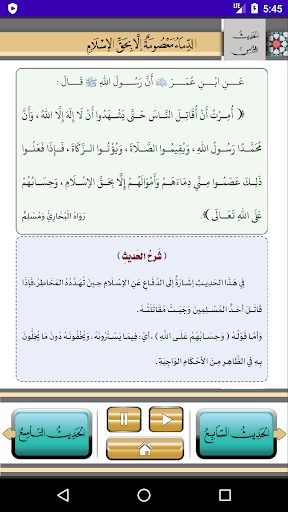 5:45
الحديث
الثامن
الدِّمَاءُ مَعْصُومَةٌ إِلَّا بِحَقِّ الإِسْلَامِ
عَـنِ ابْـنِ عُمَـرَ ﷺ أَنَّ رَسُـولَ اللهِ ﷺ قَـالَ :
﴿ أُمِـرْتُ أَنْ أُقَاتِـلَ النَّاسَ حَتَّـى يَشْـهَدُوا أَنْ لَا إِلَـهَ إِلَّا اللهُ ، وَأَنَّ
مُحَمَّـدًا رَسُـولُ اللهِ ، وَيُقِيمُـوا الصَّـلَاةَ ، وَيُؤْتُـوا الزَّكَاةَ ، فَـإِذَا فَعَلُـوا
ذَلِـكَ عَصَمُـوا مِنِّي دِمَاءَهُـمْ وَأَمْوَالَهُـمْ إِلَّا بِحَـقِّ الإِسْـلَامِ ، وَحِسَـابُهُمْ
عَلَى اللهِ تَعَالَـى ﴾.
رَوَاهُ الْبُخَارِيُّ وَمُسْلِمٌ
( شَرْحُ الحَدِيثِ )
فِـي هَـذَا الحَدِيـثِ إِشَـارَةٌ إِلَـى الدِّفَـاعِ عَـنِ الإِسْلَامِ حِيـنَ تُهَـدِّدُهُ المَخَاطِـرُ،فَـإِذَا
قَاتَـلَ أَحَـدٌ المُسْـلِمِينَ وَجَبَـتْ مُقَاتَلَتُـهُ.
وَأَمَّـا قَوْلُـهُ ( وَحِسَابُهُمْ عَلَـى اللهِ ) ،أَيْ: فِيمَـا يَسْـتُرُونَـهُ، وَيُخْفُونَـهُ دُونَ مَا يُخِلُّـونَ
بِـهِ فِـي الظَّاهِـرِ مِـنَ الأَحْـكَامِ الوَاجِبَـةِ.
الحَدِيثُ السَّابِعُ
الحَدِيثُ التَّاسِعُ